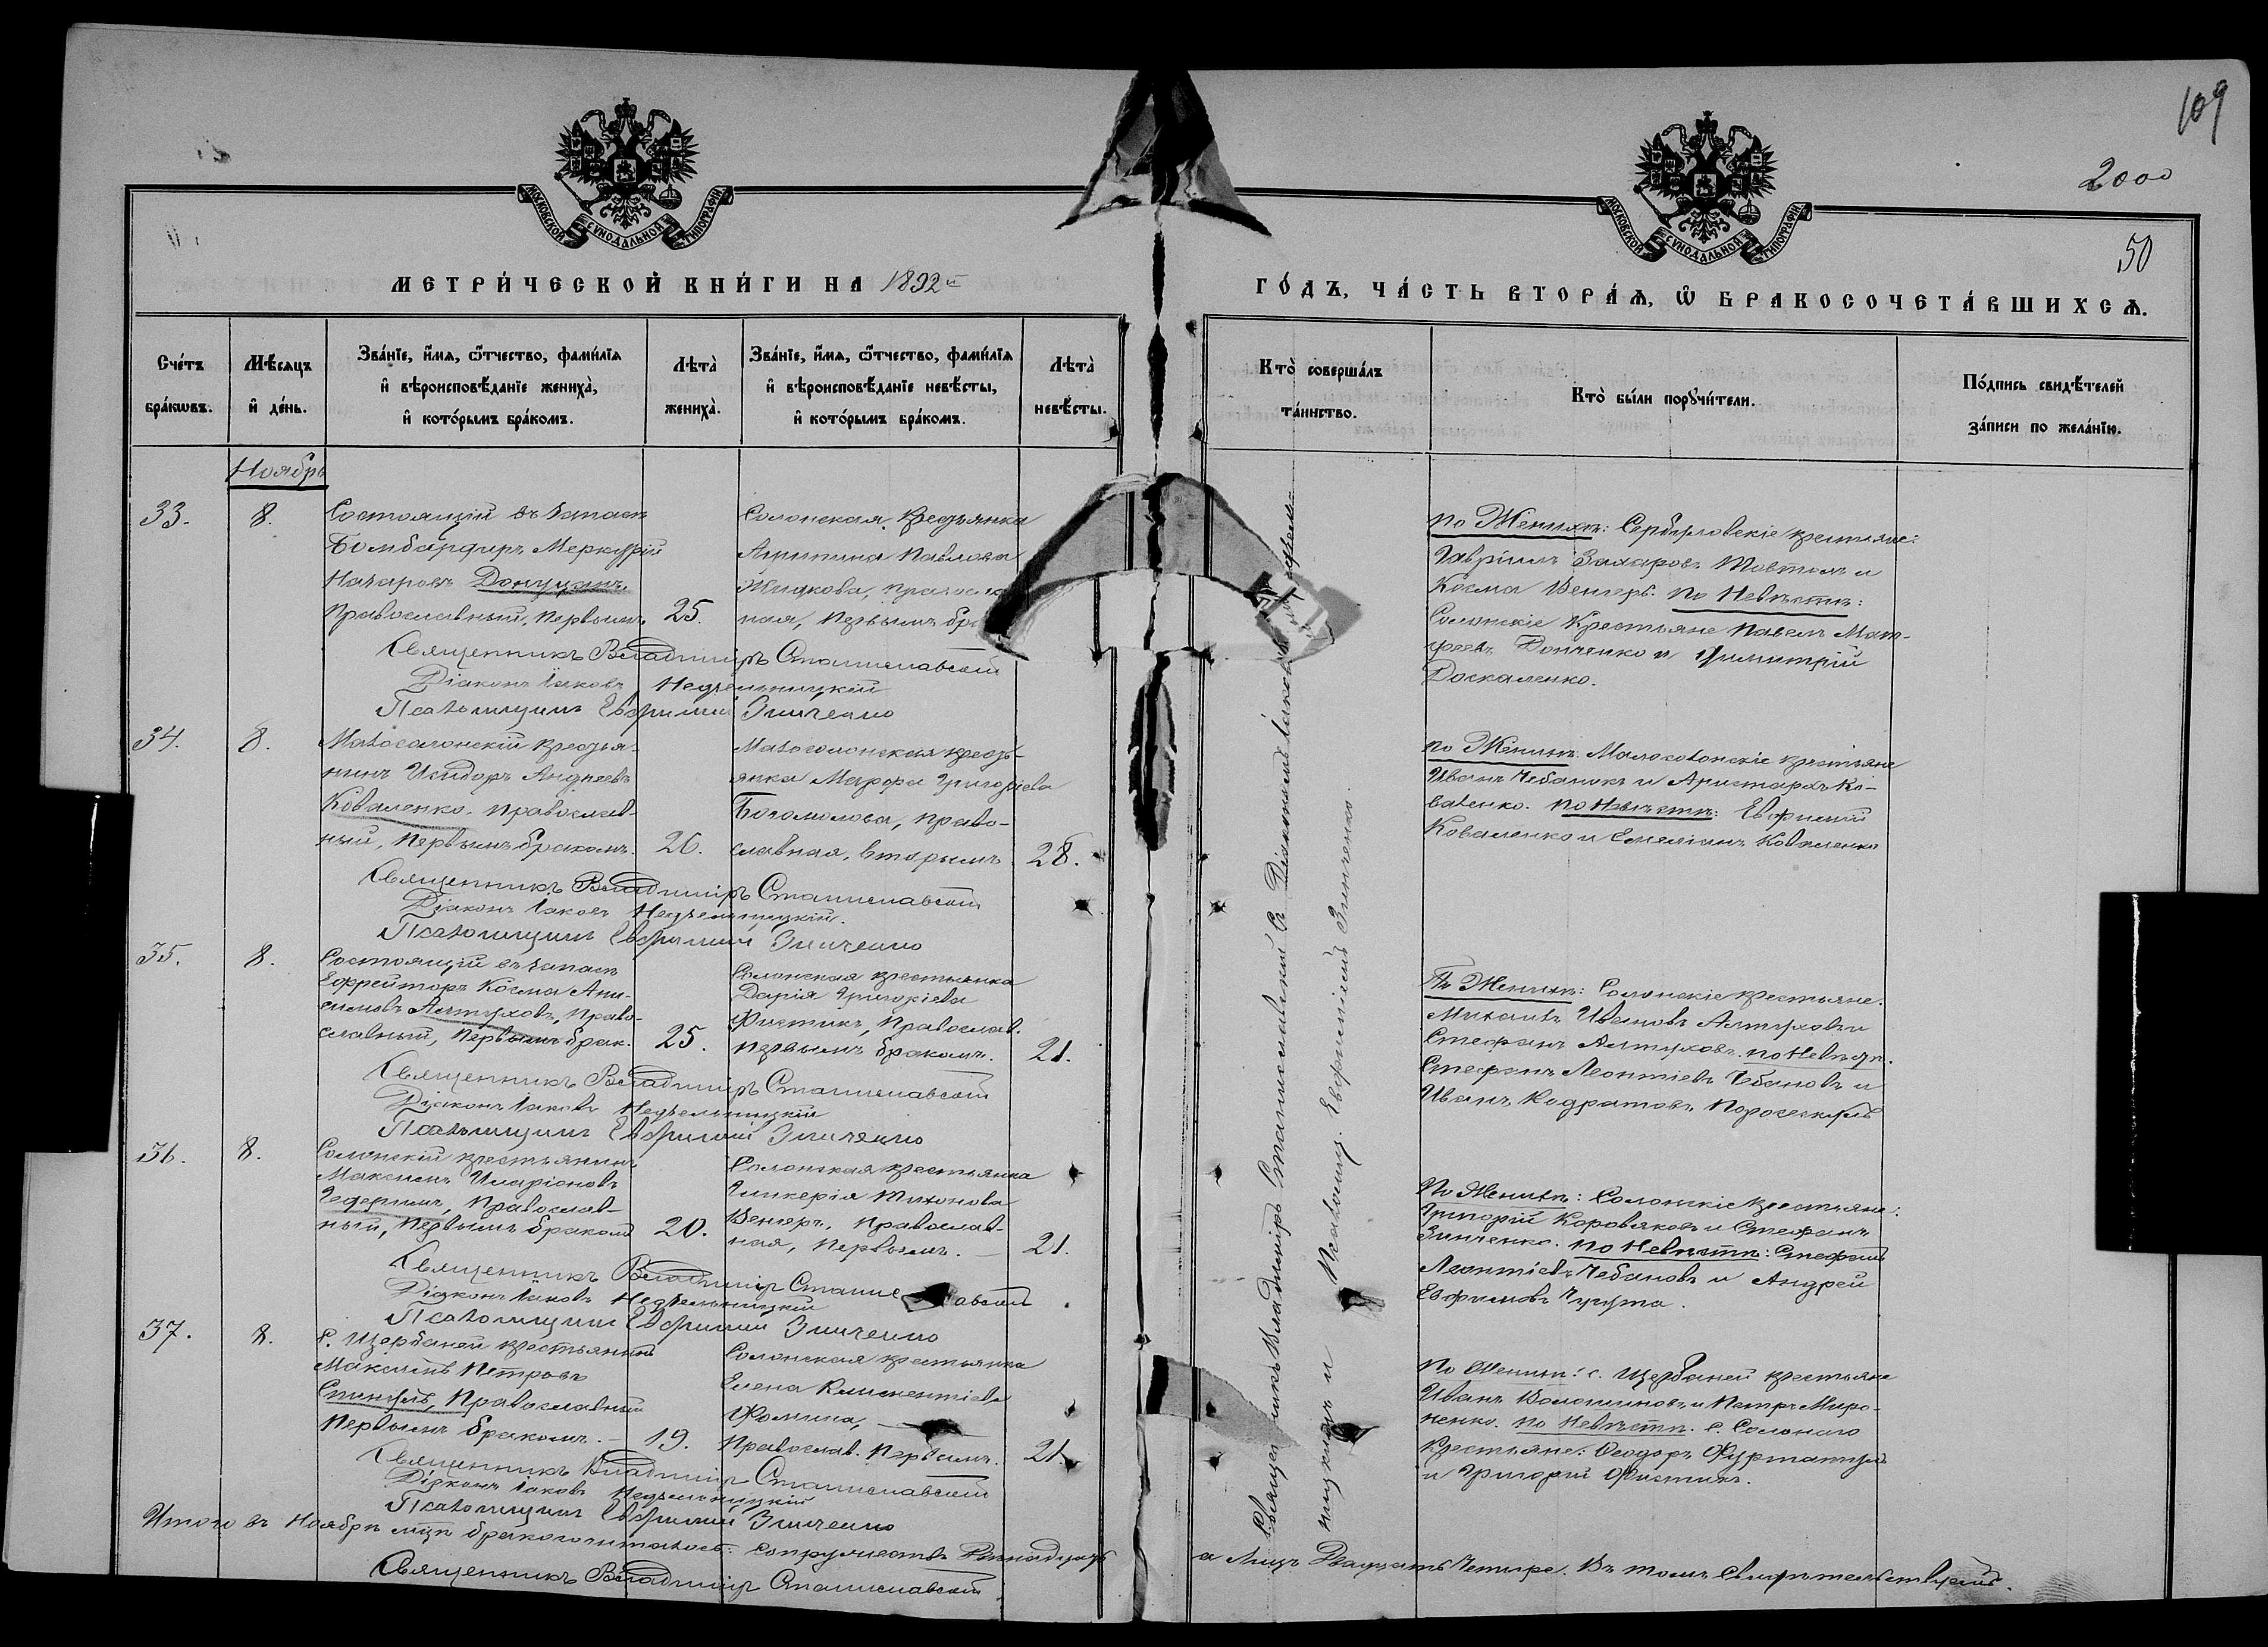 109
2000
50
МОСКОВСКОЙ СѴНОДАЛЬНОЙ ТИПОГРАФІИ
МОСКОВСКОЙ СѴНОДАЛЬНОЙ ТИПОГРАФІИ
МЕТРИ́ЧЕСКОЙ КНИ́ГИ НА 1892й
ГО́ДЪ, ЧА́СТЬ ВТОРА́Ѧ, Ѡ҆ БРАКОСОЧЕТА́ВШИХСѦ.
Сче́тъ бра́кѡвъ.
Мѣ́сяцъ и҆ де́нь.
Зва́нїе, и҆́мѧ, ѻ҆́тчество, фами́лїѧ
и҆ вѣроисповѣ́данїе жениха̀,
и҆ кото́рымъ бра́комъ.
Лѣта̀ жениха̀.
Зва́нїе, и҆́мѧ, ѻ҆́тчество, фами́лїѧ
и҆ вѣроисповѣ́данїе невѣ́сты,
и҆ кото́рымъ бра́комъ.
Лѣта̀ невѣ́сты.
Кто̀ соверша́лъ та́инство.
Кто̀ бы́ли порꙋчи́тели.
По́дпись свидѣ́телей за́писи по жела́нїю.
Ноябрь
33.
8.
Состоящій въ запасѣ
Бомбардиръ Меркурій
Назаровъ
Православный, первымъ
25.
Солонская крестьянка
Агрипина Павлова
Жидкова, правосла
ная, первымъ бра
По Женихѣ: крестьяне:
Гавріилъ Захаровъ и
Косма Венгеръ. По Невѣстѣ:
Солонскіе Крестьяне Павелъ Мат-
феевъ Донченко и Димитрій
Доскаленко.
Священникъ Владиміръ Станиславскій
Діаконъ Іаковъ Недѣльницкій
Псаломщикъ Евфимій Зинченко
34.
8.
Малосолонскій крестья-
нинъ Исидоръ Андреевъ
Коваленко. православ-
ный, первымъ бракомъ.
26.
Малосолонская кресть-
янка Марфа Григоріева
Богомолова, право-
славная, вторымъ
28.
По Женихѣ. Малосолонскіе крестьяне
Иванъ Чебанюкъ и Аристархъ Ко-
валенко. По Невѣстѣ: Евфимій
Коваленко и Емеліанъ Коваленко
Священникъ Владиміръ Станиславскій
Діаконъ Іаковъ Недѣльницкій.
Псаломщикъ Евфимій Зинченко
35.
8.
Состоящій въ запасѣ
Ефрейторъ Косма Ани-
симовъ Алтуховъ, право-
славный, первымъ брак.
25.
Солонская крестьянка
Дарія Григоріева
Фистикъ, православ.
первымъ бракомъ.
21.
По Женихѣ: Солонскіе крестьяне.
Михаилъ Ивановъ Алтуховъ и
Стефанъ Алтуховъ. по Невѣстѣ.
Стефанъ Леонтіевъ Чебановъ и
Иванъ Кодратовъ
Священникъ Владиміръ Станиславскій
Діаконъ Іаковъ Недѣльницкій
Псаломщикъ Евфимій Зинченко
36.
8.
Солонскій крестьянинъ
Максимъ Иларіоновъ
православ-
ный, первымъ бракомъ
20.
Солонская крестьянка
Гликерія Тихонова
Венгеръ, православ-
ная, первымъ. —
21.
По Женихѣ: Солонскіе крестьяне:
Григорій Коровяковъ и Стефанъ
Зинченко. По Невѣстѣ: Стефанъ
Леонтіевъ Чебановъ и Андрей
Евфимовъ
Священникъ Владиміръ Станиславскій
Діаконъ Іаковъ Недѣльницкій
Псаломщикъ Евфимій Зинченко
37.
8.
с. Щербаней крестьянинъ
Максимъ Петровъ
Православный
первымъ бракомъ. —
19.
Солонская крестьянка
Елена Климентіева
Фомина,
Православ. первымъ.
21.
По Женихѣ: с. Щербаней крестьяне
Иванъ Волошиновъ и Петръ Миро-
ненко. по Невѣстѣ. с. Солонаго
Крестьяне: Ѳеодоръ
и Григорій Фистикъ.
Священникъ Владиміръ Станиславскій
Діаконъ Іаковъ Недѣльницкій
Псаломщикъ Евфимій Зинченко
Священникъ Владиміръ Станиславскій съ Діакономъ Іаковомъ
ницкимъ и Псаломщ. Евфиміемъ Зинченко.
Итого въ Ноябрѣ мцѣ бракосочеталось: супружествъ
а лицъ Двадцать Четыре. Въ томъ свидѣтельствуемъ.
Священникъ Владиміръ Станиславскій